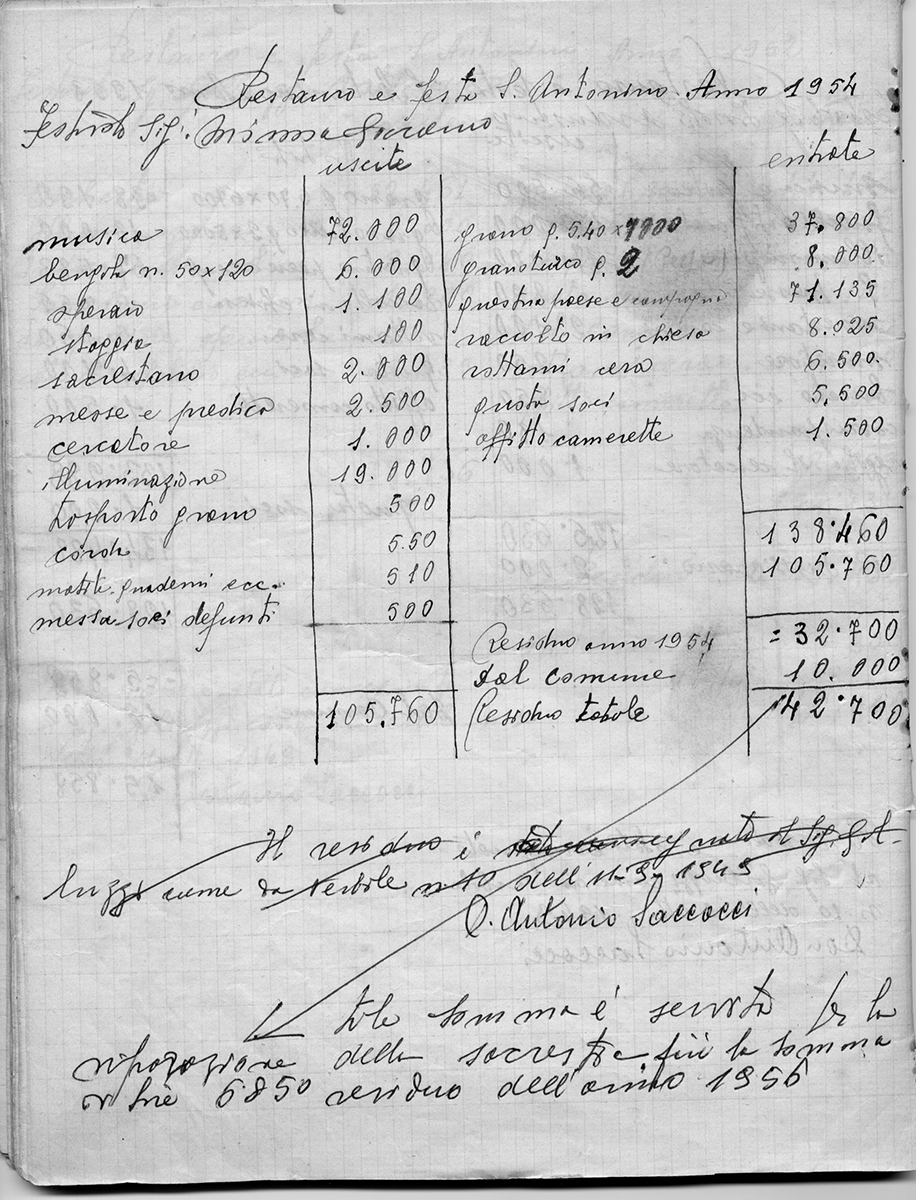 Restauro e festa S. Antonino. Anno 1954
Sig.
uscite entrate
musica 72.000 grano q. 5.40 x 7000 37.800
bengoli n. 50x120 6.000 granoturco q. 2 8.000
sparo 1.100 questua paese e campagna 71.135
staggio 100 raccolto in chiesa 8.025
sacrestano 2.000 rottami cera 6.500
messe e predica 2.500 quota soci 5,500
cercatore 1.000 affitto camerette 1.500
illuminazione 19.000
trasporto grano 500 138.460
corda 5.50 105.760
matite quaderni ecc.. 510
messa soci defunti 500 = 32.700
Residuo anno 1954
dal comune 10.000
105.760 Residuo totale 42.700
Il residuo è
come da verbale n 10 dell'11-9-1949
D. Antonio Saccocci
tale somma è servita per la
riparazione della sacrestia più la somma
di lire 6850 residuo dell'anno 1956